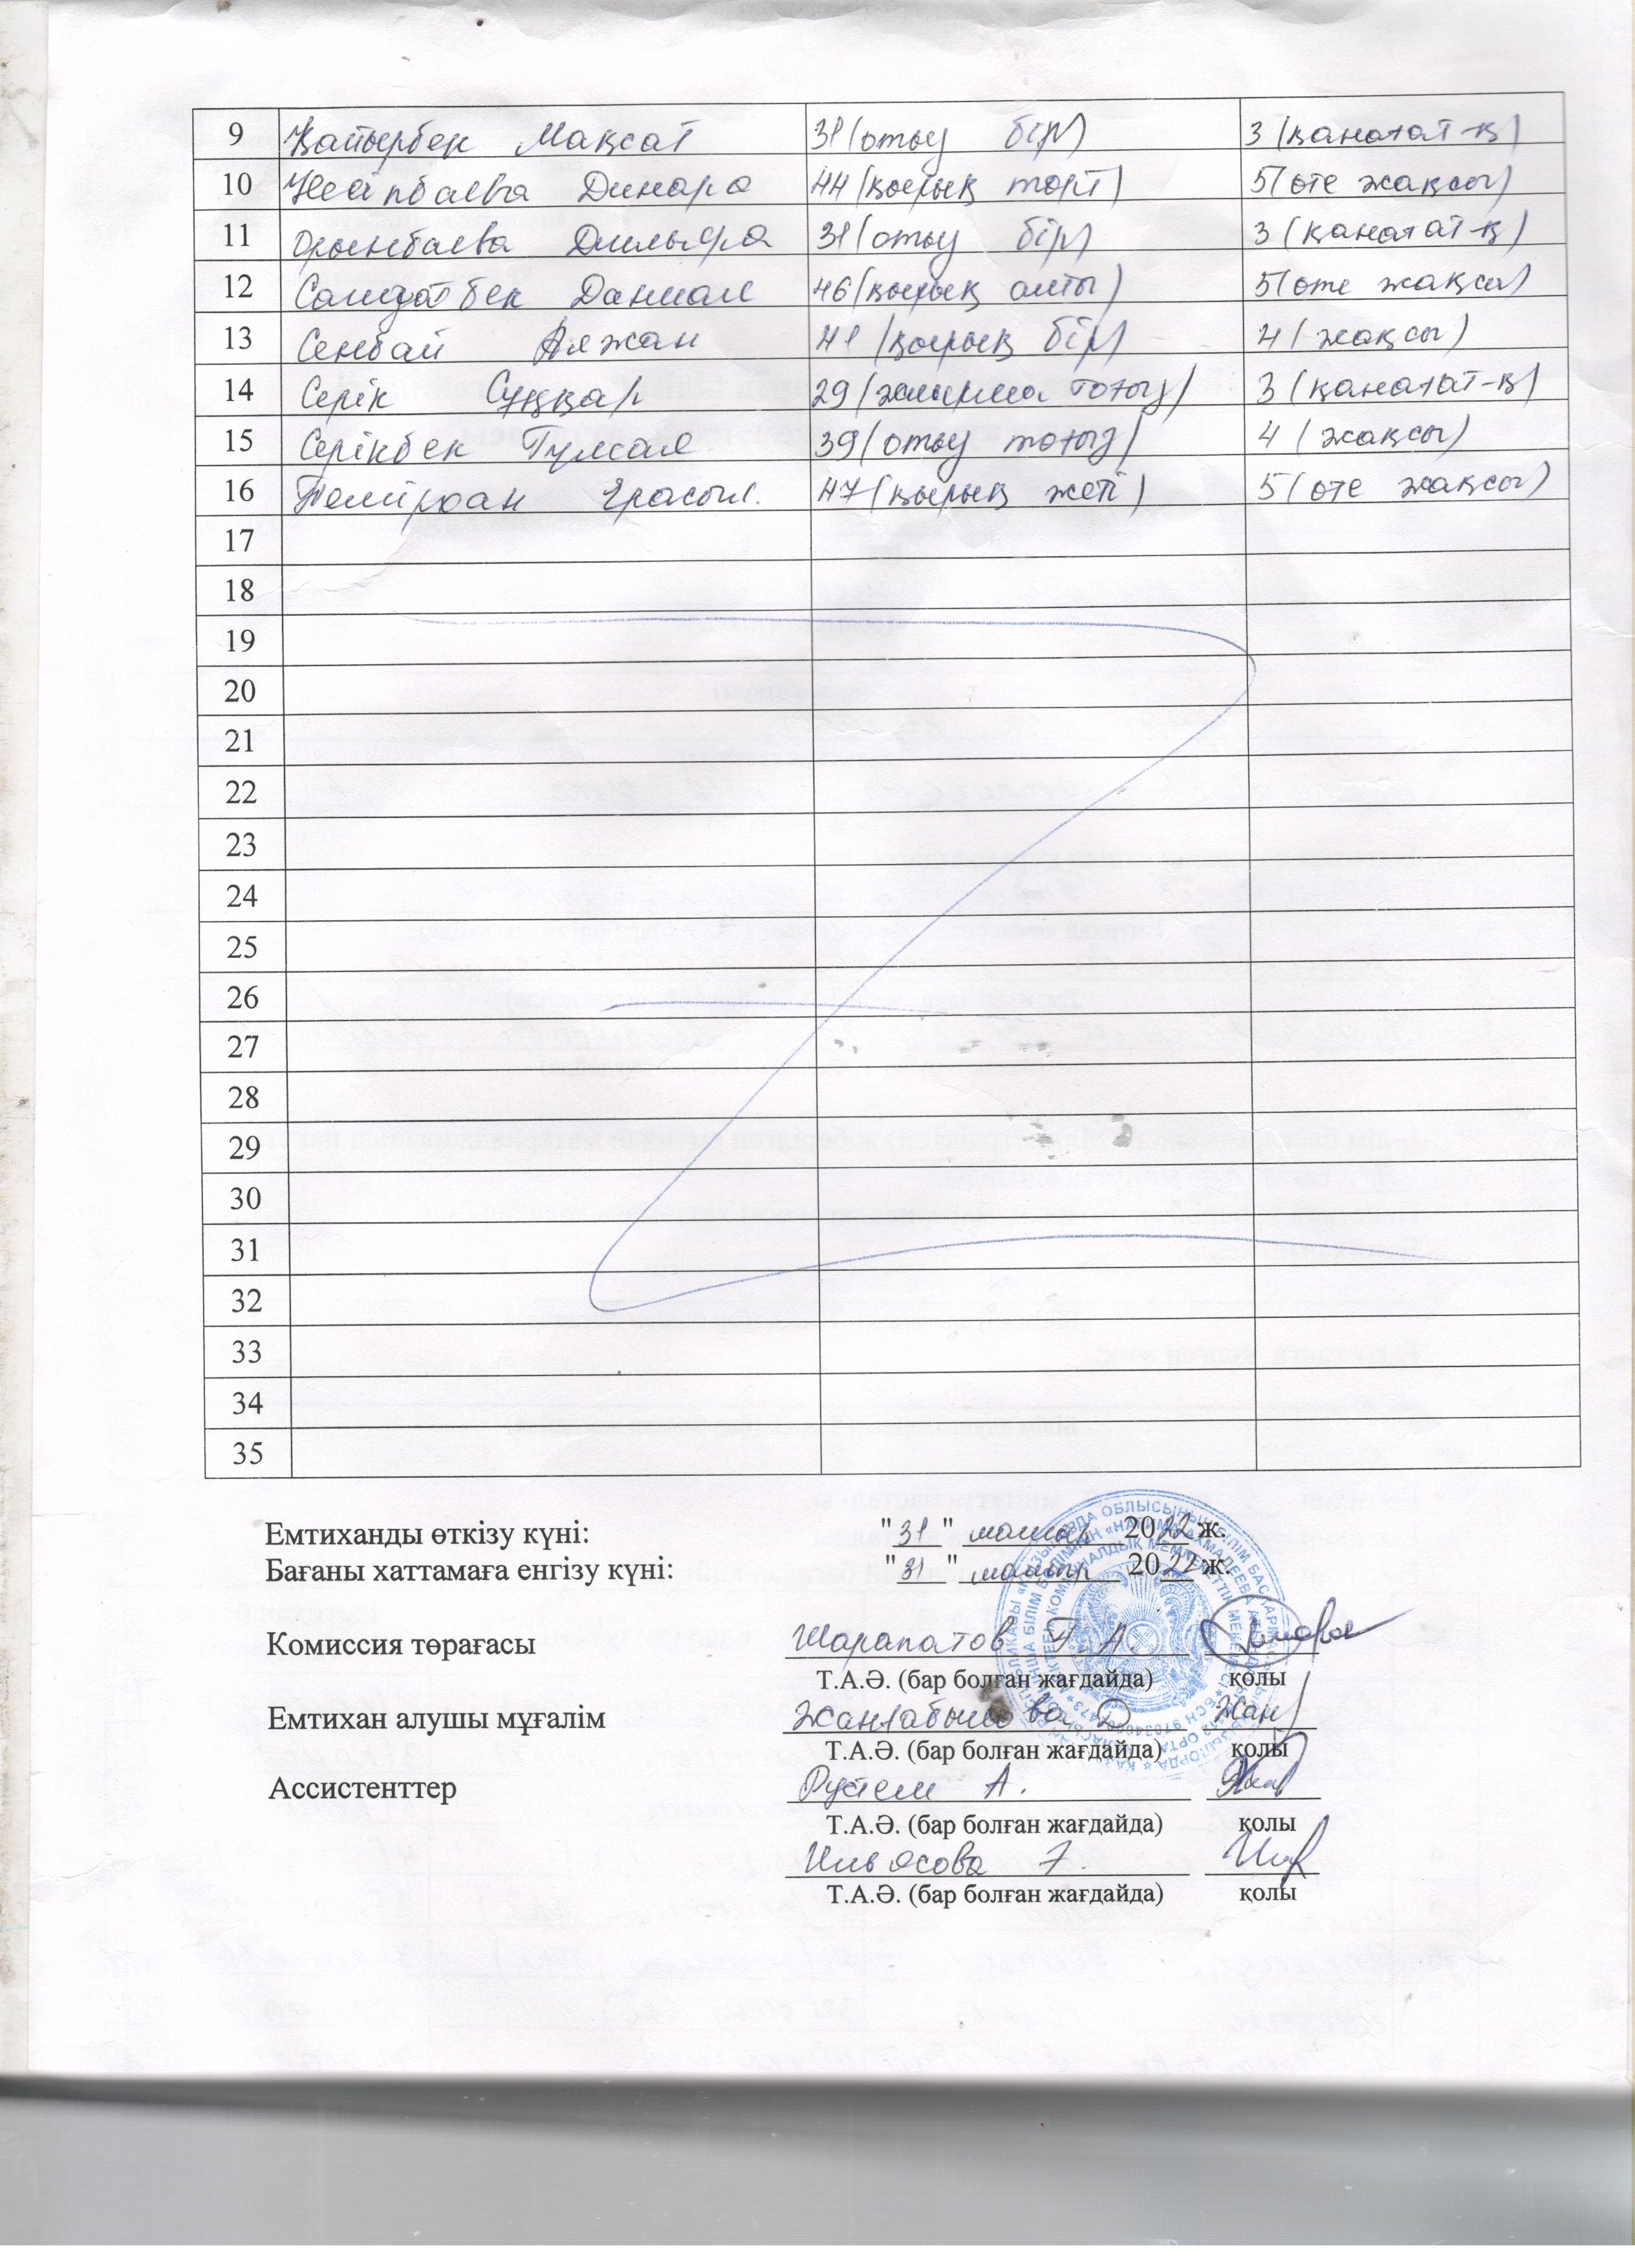 9 Қайырбек Мақсат 31 (отыз бір) 3 (қанағат-қ)
10 Динара 44 (қырық төрт) 5 (өте жақсы)
11 Орынбаева 31 (отыз бір) 3 (қанағат-қ)
12 Даниал 46 (қырық алты) 5 (өте жақсы)
13 Сенбай Аяжан 41 (қырық бір) 4 (жақсы)
14 Серік Сұңқар 29 (жиырма тоғыз) 3 (қанағат-қ)
15 Серікбек 39 (отыз тоғыз) 4 (жақсы)
16 Ерасыл. 47 (қырық жеті) 5 (өте жақсы)
17
18
19
20
21
22
23
24
25
26
27
28
29
30
31
32
33
34
35
Емтиханды өткізу күні: "31" мамыр 2022 ж.
Бағаны хаттамаға енгізу күні: "31" мамыр 2022 ж.
Комиссия төрағасы Шарапатов А.
Т.А.Ә. (бар болған жағдайда) қолы
Емтихан алушы мұғалім Жантабылова Жан
Т.А.Ә. (бар болған жағдайда) қолы
Ассистенттер Рүстем А.
Т.А.Ә. (бар болған жағдайда) қолы
Ильясова
Т.А.Ә. (бар болған жағдайда) қолы